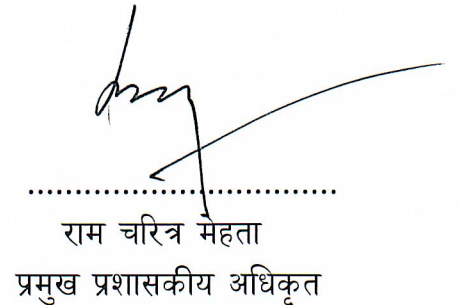 ........................................
राम चरित्र मेहता
प्रमुख प्रशासकीय अधिकृत